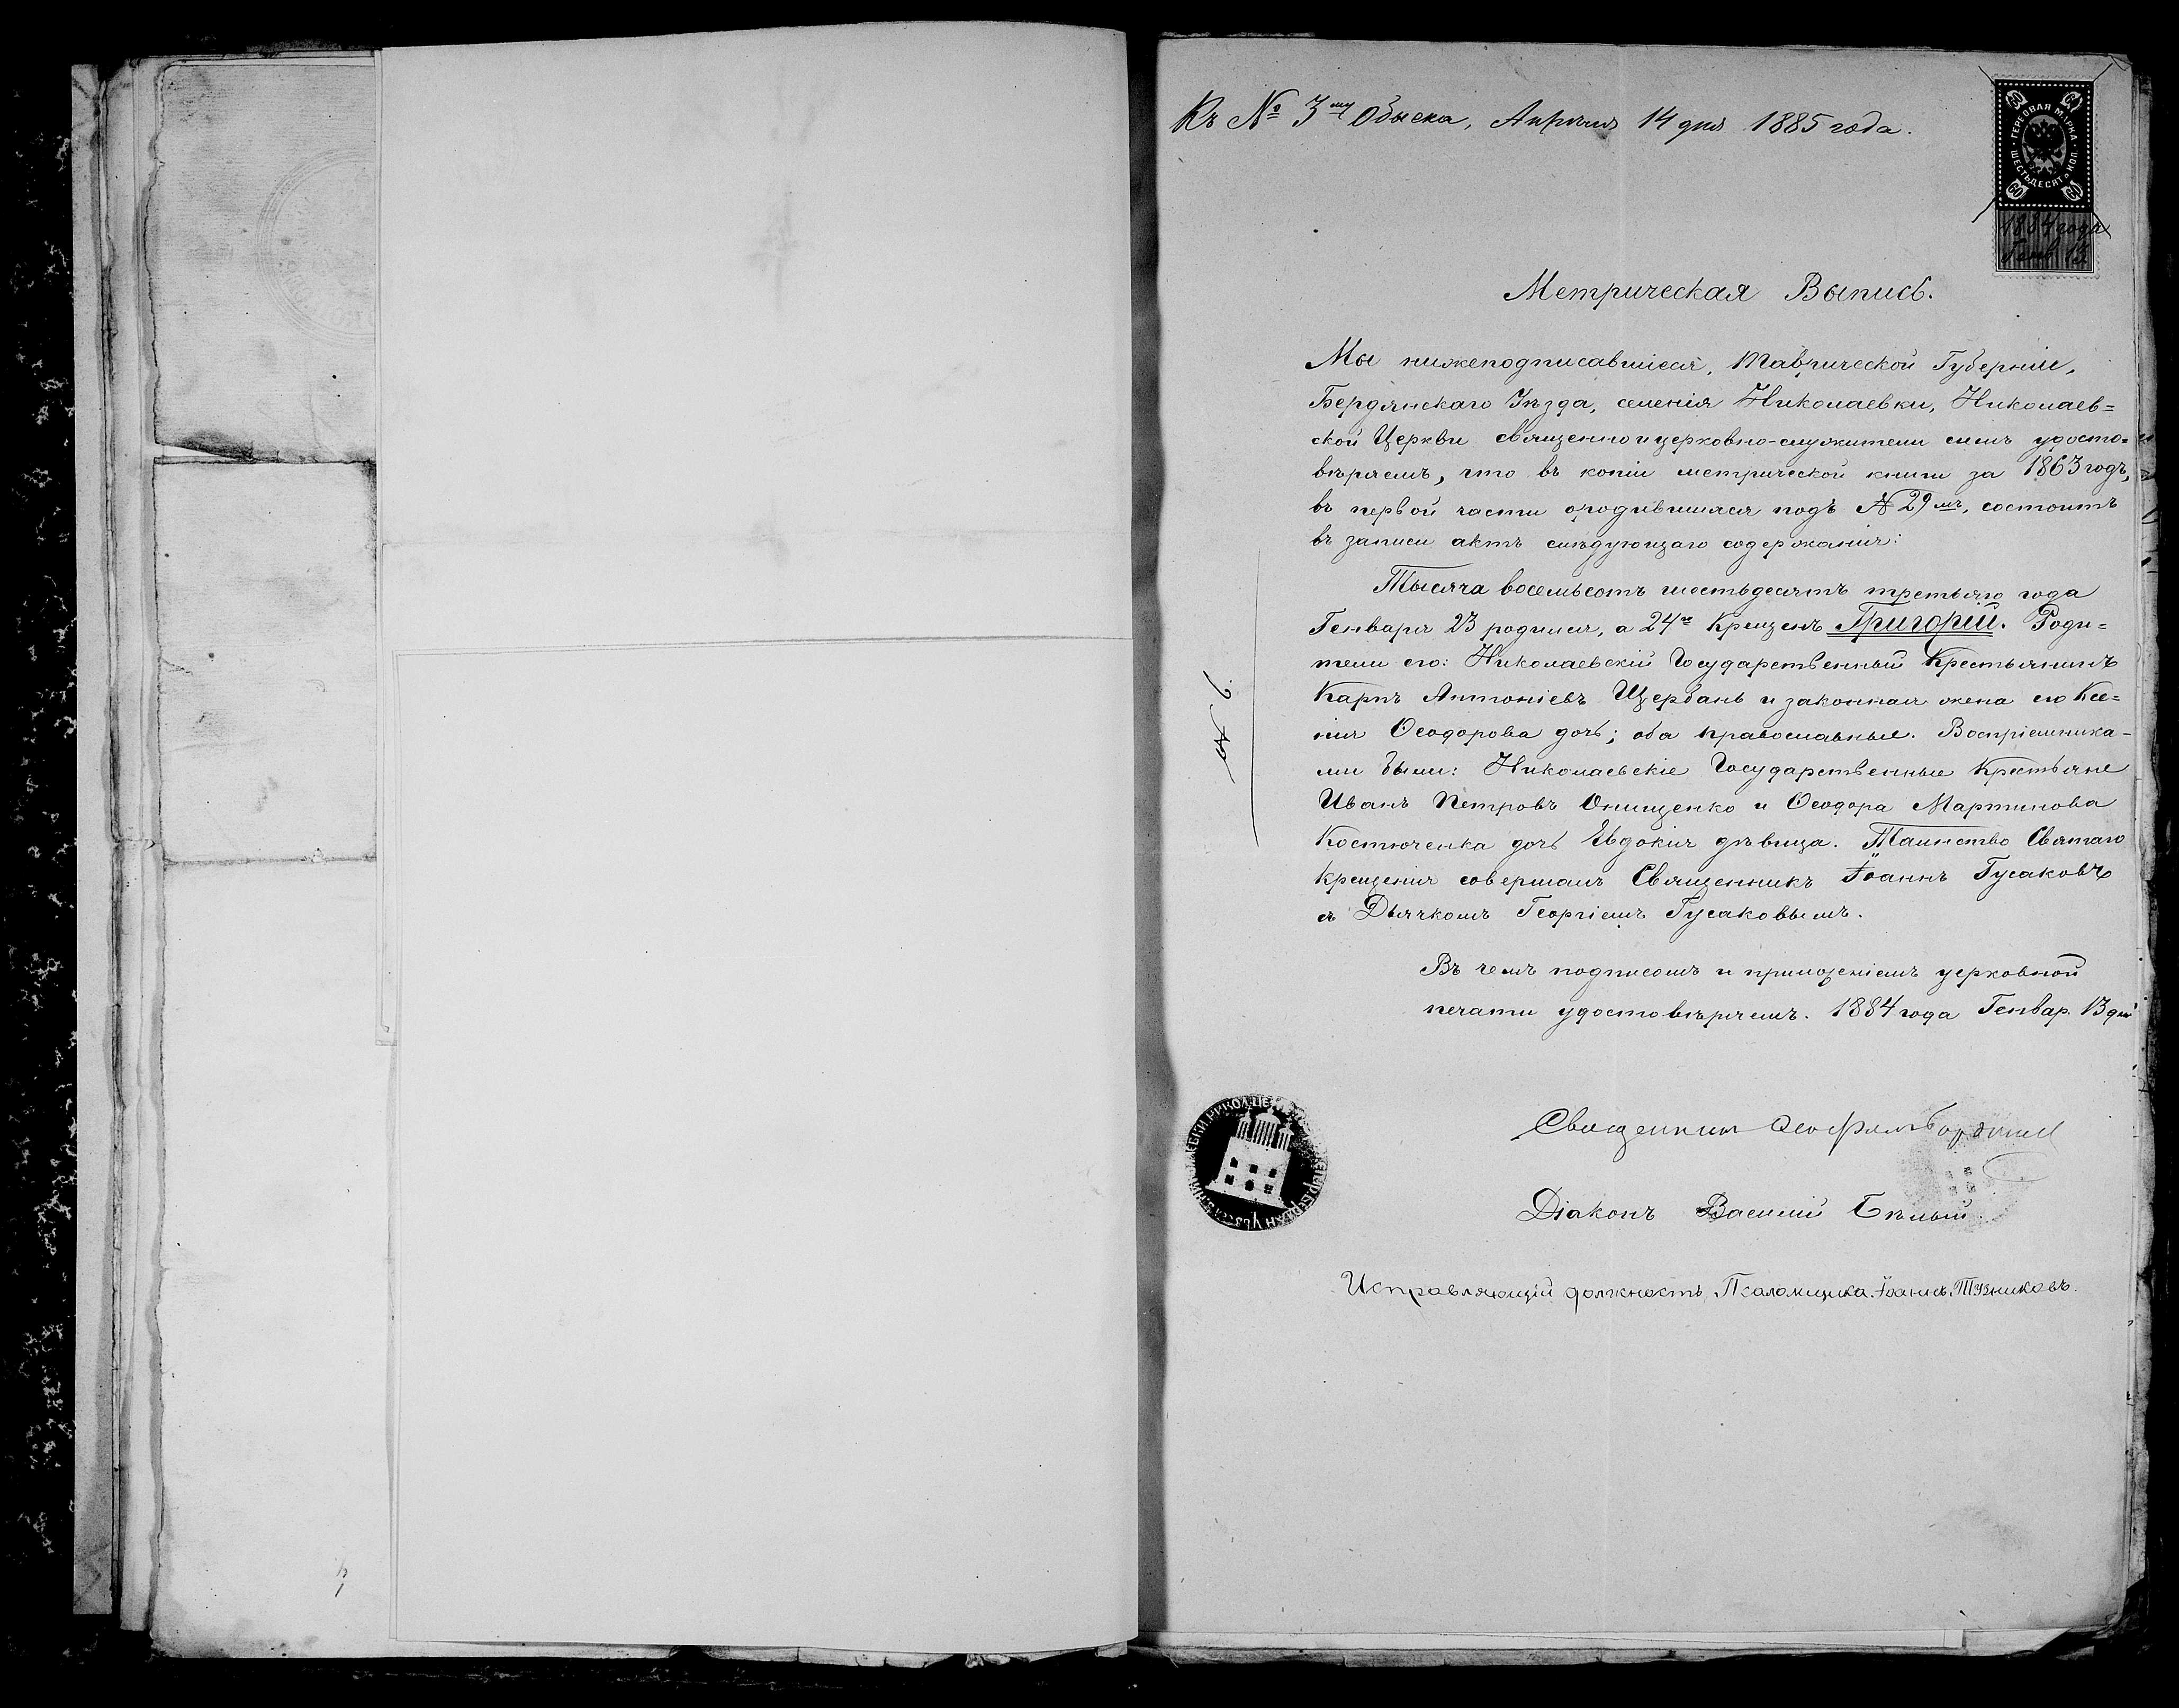 Къ № 3му Обыска, Апрѣля 14 дня 1885 года.
ГЕРБОВАЯ МАРКА
ШЕСТЬДЕСЯТЪ КОП.
60 60
60 60
1884 года
Генв. 13.
Метрическая Выпись.
Мы нижеподписавшіеся, Таврической Губерніи,
Бердянскаго Уѣзда, селенія Николаевки, Николаев=
ской Церкви священно и церковно-служители симъ удосто=
вѣряемъ, что въ копіи метрической книги за 1863 годъ,
въ первой части о родившихся подъ № 29мъ, состоитъ
въ записи актъ слѣдующаго содержанія:
Тысяча восемьсотъ шестьдесятъ третьяго года
Генваря 23 родился, а 24го Крещенъ Григорій. Роди=
тели его: Николаевскій Государственный Крестьянинъ
Карпъ Антоніевъ Щербань и законная жена его Ксе=
нія Ѳеодорова дочь; оба православные. Воспріемника-
ми были: Николаевскіе Государственные Крестьяне
Иванъ Петровъ Онищенко и Ѳеодора Мартинова
Костюченка дочь Евдокія дѣвица. Таинство Святаго
крещенія совершалъ Священникъ Іоаннъ Гусаковъ
съ Дьячкомъ Георгіемъ Гусаковымъ.
Въ чемъ подписомъ и приложеніемъ церковной
печати удостовѣряемъ. 1884 года Генвар. 13 дня
№ 9
Священникъ
Діаконъ Василій Бѣлый.
Исправляющій должность Псаломщика Іоаннъ